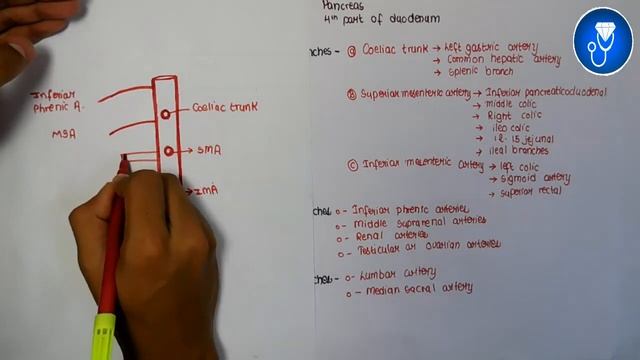 Inferior
Phrenic A.
MSA
Coeliac trunk
SMA
IMA
Pancreas
4th part of duodenum
nches - ⓐ Coeliac trunk → Left gastric artery
→ Common hepatic artery
→ Splenic branch
ⓑ Superior mesenteric artery → Inferior pancreaticoduodenal
→ middle colic
→ Right colic
→ ileo colic
→ 12-15 jejunal
→ ileal branches
ⓒ Inferior mesenteric artery → left colic
→ sigmoid artery
→ superior rectal
ches o- Inferior phrenic arteries
o- Middle suprarenal arteries
o- Renal arteries
o- Testicular or ovarian arteries
ches - o- Lumbar artery
o- Median sacral artery